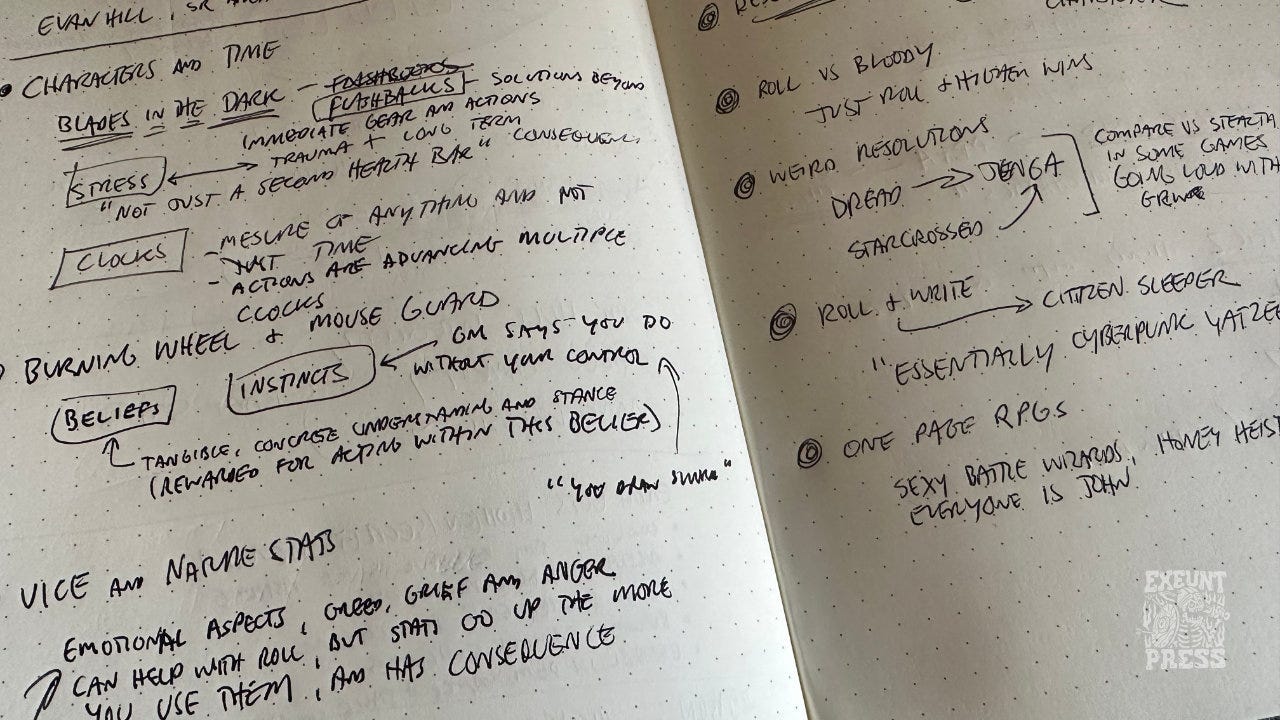 EVAN HILL, SR
CHARACTERS AND TIME
BLADES IN THE DARK - FLASHBACKS - SOLUTIONS BEYOND
IMMEDIATE GEAR AND ACTIONS
STRESS TRAUMA + LONG TERM
"NOT JUST A SECOND HEALTH BAR" CONSEQUENC
CLOCKS - MESURE OF ANYTHING AND NOT
JUST TIME
- ACTIONS ARE ADVANCING MULTIPLE
CLOCKS
BURNING WHEEL & MOUSE GUARD
INSTINCTS GM SAYS YOU DO
WITHOUT YOUR CONTROL
BELIEFS
TANGIBLE, CONCRETE UNDERSTANDING AND STANCE
(REWARDED FOR ACTING WITHIN THIS BELIEF)
"YOU DRAW
VICE AND NATURE STATS
EMOTIONAL ASPECTS, GREED, GRIEF AND ANGER
CAN HELP WITH ROLL, BUT STATS GO UP THE MORE
YOU USE THEM, AND HAS CONSEQUENCE
ROLL VS BLOODY
JUST ROLL + HIGHER WINS
WEIRD RESOLUTIONS
DREAD → JENGA
STARCROSSED
COMPARE VS STEALTH
IN SOME GAMES
GOING LOUD WITH
ROLL & WRITE
CITIZEN SLEEPER
"ESSENTIALLY CYBERPUNK YATZEE
ONE PAGE RPGS
SEXY BATTLE WIZARDS, HONEY HEIST
EVERYONE IS JOHN
EXEUNT
PRESS